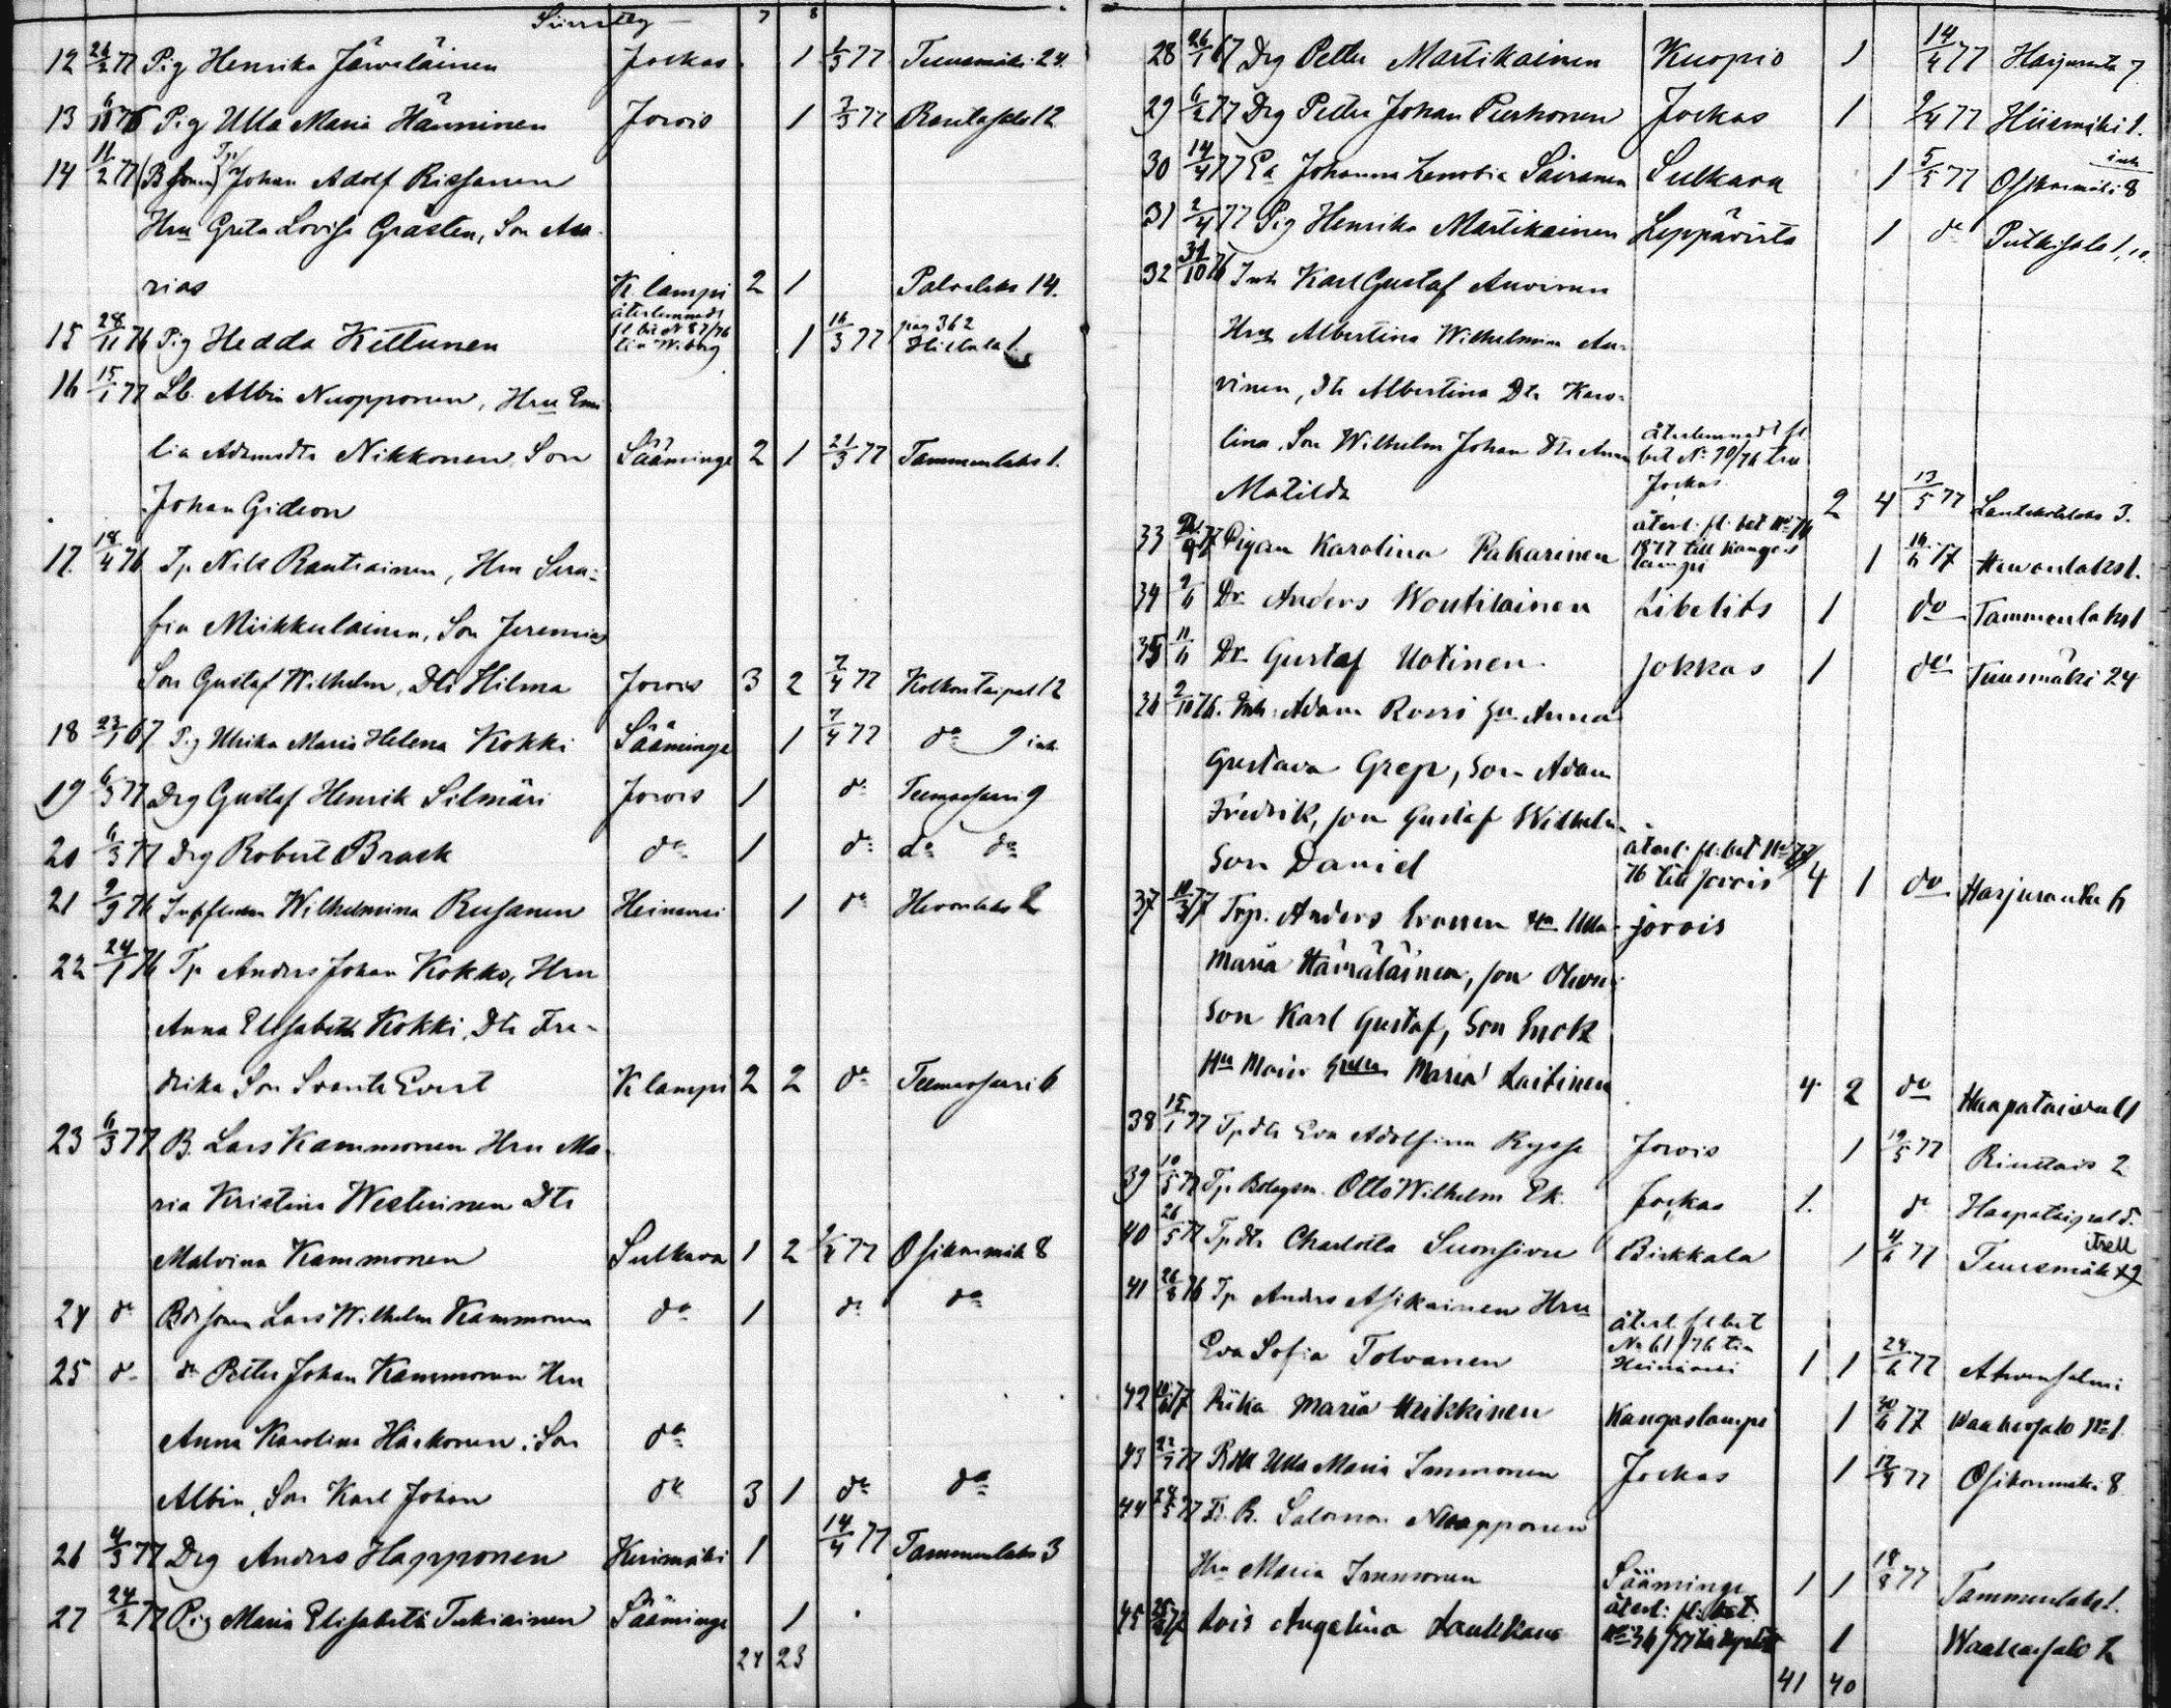 7 8
12 26/2 77 Pig Henrika Järveläinen Jockas 1 1/3 77 Tuusmäki 24.
13 6/10 76 Pig Ulla Maria Hänninen Jorois 1 7/3 77 Rantasalo 12
14 11/2 77 (B sonen) Tp Johan Adolf Rissanen
Hru Greta Lovisa Gråsten, Son
rias K. lampi 2 1 14.
återlemnadt
15 28/11 76 Pig Hedda Kettunen fl. bet N 87/76 till Wiborg 1 16/3 77 pag 362 1.
16 15/1 77 Lb. Albin Nuopponen, Hru Emi
lia Nikkonen, Son Sääminge 2 1 21/3 77 Tammenlaks 1.
Johan Gideon
17. 18/4 76 Tp Nils Rautiainen, Hru Sera-
fia Miikkulainen, Son Jeremias
Son Gustaf Wilhelm, Dtr Hilma Jorois 3 2 7/4 77 Kolkontaipal 12
18 23/1 67 Pig Ulrika Maria Helena Kokki Sääminge 1 7/4 77 do 9 inh.
19 6/3 77 Drg Gustaf Henrik Silmäri Jorois 1 do Teemassaari 9
20 6/3 77 Drg Robert Brask do 1 do do do
21 9/9 76 Wilhelmina Rusanen Heinävesi 1 do Hevonlaks 2
22 24/1 76 Tp Anders Johan Kokko, Hru
Anna Elisabeth Kokki, Dtr Fre-
drika Son Svante Evert K lampi 2 2 do Teemassaari 6
23 6/3 77 B. Lars Kammonen Hru Ma-
ria Kristina Westerinen Dtr
Malvina Kammonen Sulkava 1 2 9/4 77 Osikonmäki 8
24 do Bdesonen Lars Wilhelm Kammonen do 1 do do
25 do do Petter Johan Kammonen Hru
Anna Karolina Härkonen, Son do
Albin, Son Karl Johan do 3 1 do do
26 4/3 77 Drg Anders Happonen Kerimäki 1 14/4 77 Tammenlaks 3
27 24/2 77 Pig Maria Elisabeth Tukiainen Sääminge 1
24 23
28 26/1 67 Drg Petter Martikainen Kuopio 1 14/4 77 Harjuranta 7
29 6/2 77 Drg Petter Johan Pierhonen Jockas 1 9/4 77 Hiismäki 1.
30 14/4 77 Ea Johanna Zenobia Sairanen Sulkava 1 5/5 77 Osikonmäki 8 inh
31 2/4 77 Pig Henrika Martikainen Leppävirta 1 do Putkisalo 1,
32 31/10 76 Inh Karl Gustaf Auvinen
Hru Albertina Wilhelmina Au-
vinen, Dtr Albertina Dtr Karo-
lina, Son Wilhelm Johan Dtr Anna återlemnadt fl. bet N: 70/76 till
Matilda Jockas 2 4 13/5 77 3.
33 Pigan Karolina Pakarinen återl. fl. bet No 74 1877 till Kangas lampi 1 16/6 77 Hevonlaks 1.
34 9/6 Dr Anders Woutilainen Libelits 1 do Tammenlaks 1
35 11/6 Dr Gustaf Uotinen Jokkas 1 do Tuusmäki 24
36 2/10 76. Inh: Adam Rossi Hu Anna
Gustava Grep, Son Adam
Fredrik, son Gustaf Wilhelm
Son Daniel återl. fl. bet No 77/76 till Jorois 4 1 do Harjuranta 6
37 Trp. Anders Ironen Hu Ulla- Jorois
Maria Hämäläinen, son
Son Karl Gustaf, Son Enok
Hu Maria Laitinen 4 2 do Haapataival 1
38 15/1 77 Tpdtr Eva Adolfina Ryssä Jorois 1 19/5 77 2
39 10/5 77 Tp Bolagsm. Otto Wilhelm Ek. Jockas 1. do Haapataipal 5.
40 26/5 77 Tpdtr Charlotta Suonsivu Birkkala 1 4/6 77 Tuusmäki
41 26/8 76 Tp Anders Asikainen Hru
Eva Sofia Tolvanen återl. fl bet No 61/76 till Heinävesi 1 1 24/6 77 Ahvensalmi
42 Piika Maria Heikkinen Kangaslampi 1 30/6 77 Waahersalo No 1.
43 Ulla Maria Immonen Jockas 1 12/8 77 Osikonmäki 8
44 B. Salomon Nuopponen
Hru Maria Immonen Sääminge 1 1 18/8 77 Tammenlaks 1.
45 Lois Angelina Laukkane återl: fl: bet: No 36/77 till 1 Waahersalo 2
41 40